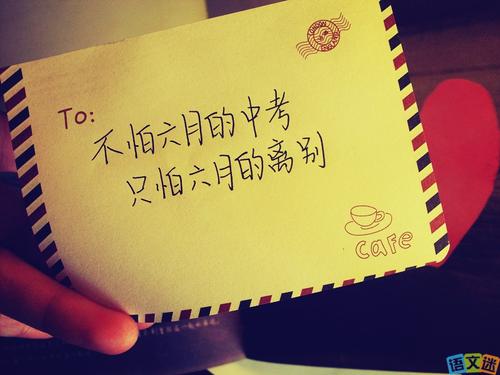 To:
不怕六月的中考
只怕六月的离别
cafe
语文迷